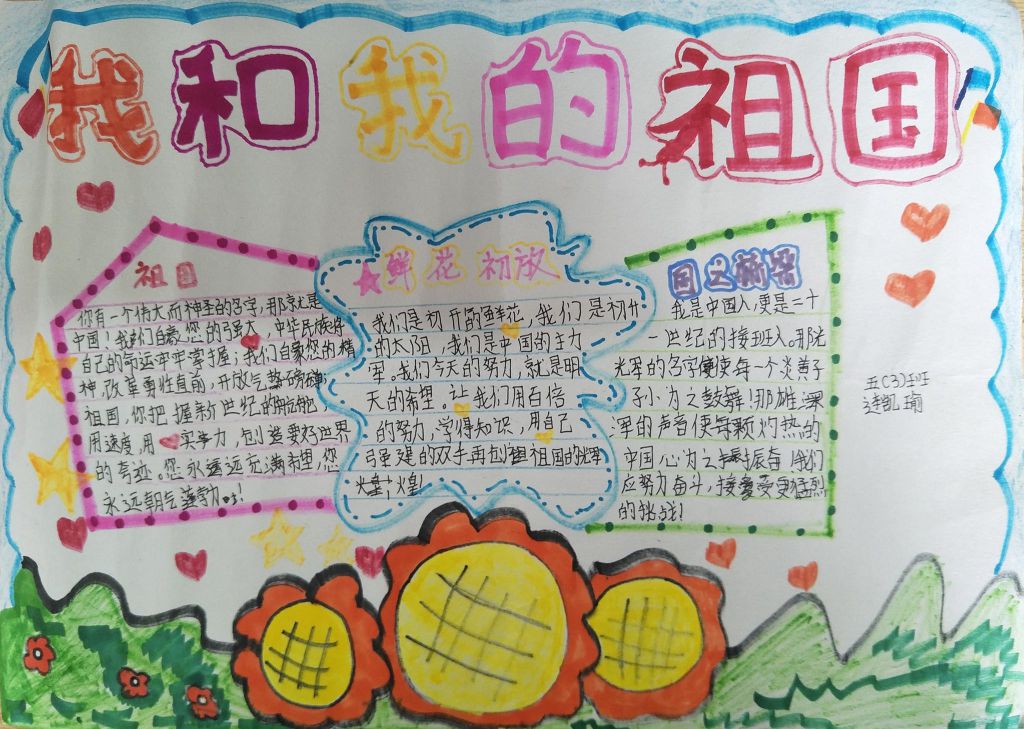 我和我的祖国
祖国
你有一个伟大而神圣的名字,那就是
中国!我们自豪,您的强大,中华民族将
自己的命运牢牢掌握;我们自豪您的精
神,改革勇往直前,开放气势磅礴
祖国,你把握新世纪的脉胞,
用速度,用实力,创造要好世界
的奇迹。您永远远充满希望,您
永远朝气蓬勃..!
鲜花初放
我们是初开的鲜花,我们是初升
的太阳,我们是中国的主力
军。我们今天的努力,就是明
天的希望。让我们用百倍
的努力,学得知识,用自己
强健的双手再创祖国的光辉
火皇,火皇!
国之
我是中国人,更是二十
一世纪的接班人。那光
光军的名字使每一个炎黄子
子小为之鼓舞!那雄浑
浑的声音使每颗灼热的
中国心为之振奋!我们
应努力奋斗,接受更猛烈
的挑战!
五(3)班
逄凯瑜